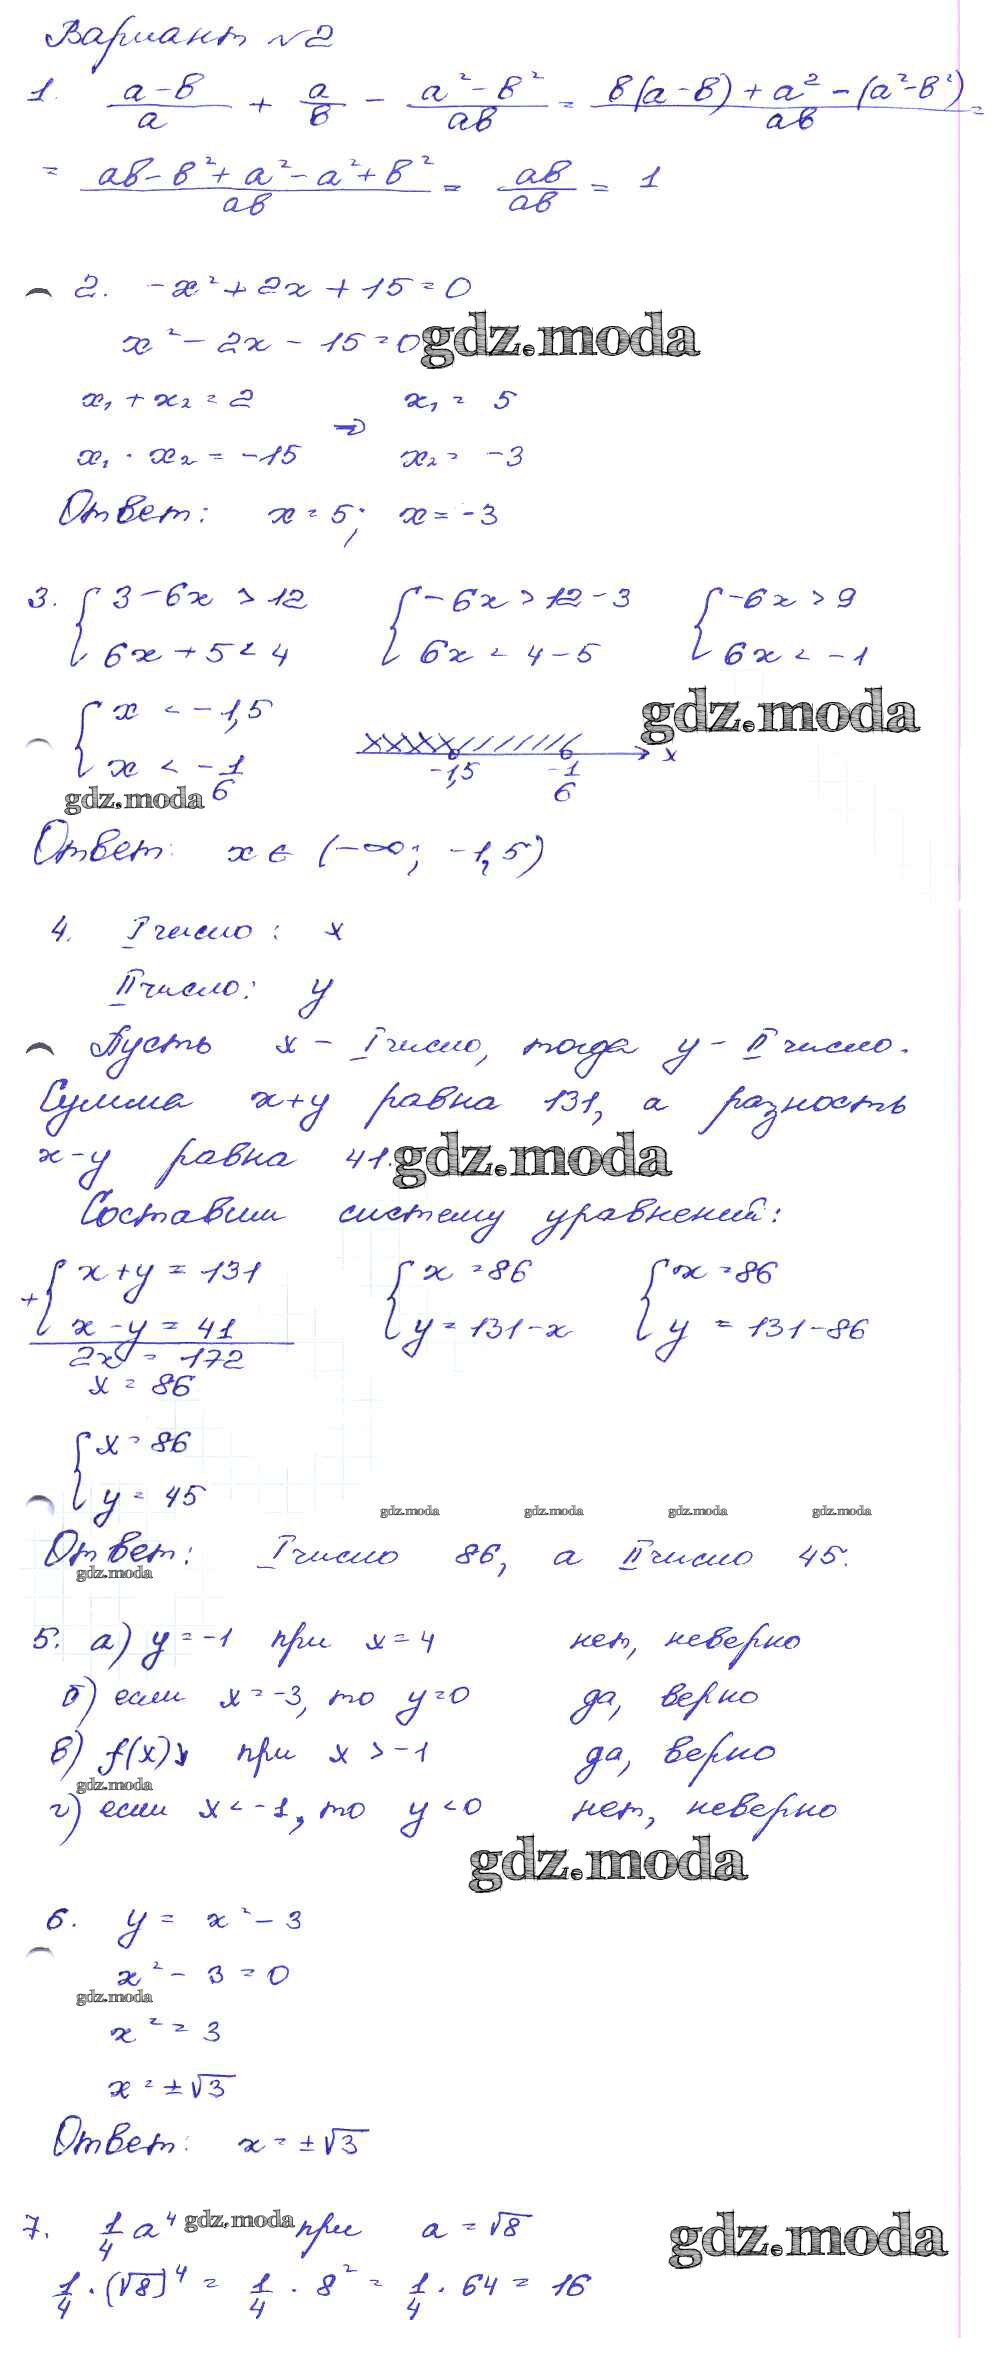 Вариант №2
1. (a-b)/a + a/b - (a²-b²)/ab = (b(a-b)+a²-(a²-b²))/ab =
= (ab-b²+a²-a²+b²)/ab = ab/ab = 1
2. -x²+2x+15=0
x²-2x-15=0
gdz.moda
x₁+x₂=2 x₁=5
⇒
x₁·x₂=-15 x₂=-3
Ответ: x=5; x=-3
3. { 3-6x>12 { -6x>12-3 { -6x>9
6x+5<4 6x<4-5 6x<-1
gdz.moda
{ x<-1,5
x<-1/6
-1,5 -1/6 x
gdz.moda
Ответ: x∈(-∞; -1,5)
4. I число: x
II число: y
Пусть x - I число, тогда y - II число.
Сумма x+y равна 131, а разность
x-y равна 41.
gdz.moda
Составим систему уравнений:
+{ x+y=131 { x=86 { x=86
x-y=41 y=131-x y=131-86
2x=172
x=86
{ x=86
y=45
gdz.moda gdz.moda gdz.moda gdz.moda
Ответ: I число 86, а II число 45.
gdz.moda
5. а) y=-1 при x=4 нет, неверно
б) если x=-3, то y=0 да, верно
в) f(x)↘ при x>-1 да, верно
gdz.moda
г) если x<-1, то y<0 нет, неверно
gdz.moda
6. y=x²-3
x²-3=0
gdz.moda
x²=3
x=±√3
Ответ: x=±√3
7. 1/4 a⁴ gdz.moda при a=√8
gdz.moda
1/4·(√8)⁴ = 1/4·8² = 1/4·64 = 16